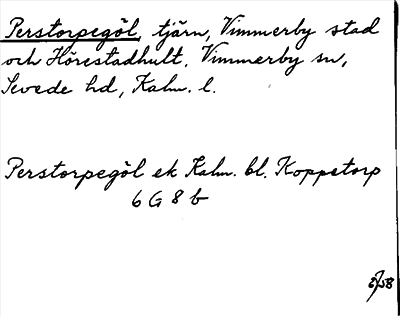 Perstorpegöl, tjärn, Vimmerby stad
och Hörestadhult, Vimmerby sn,
Sevede hd, Kalm. l.
Perstorpegöl ek Kalm. bl. Koppetorp
6 G 8 b
2/58